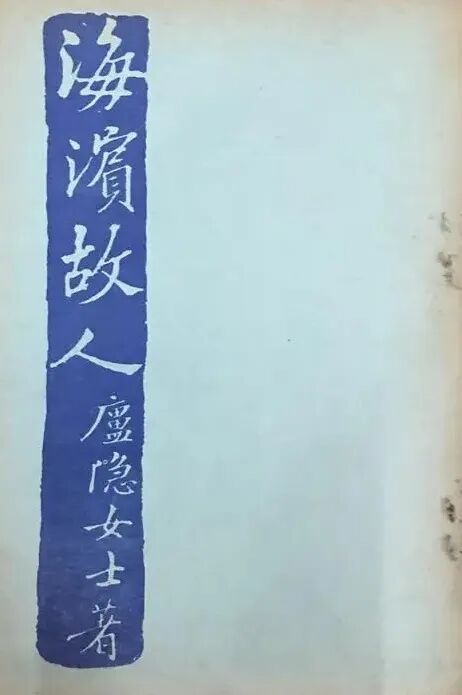 海濱故人
廬隐女士著